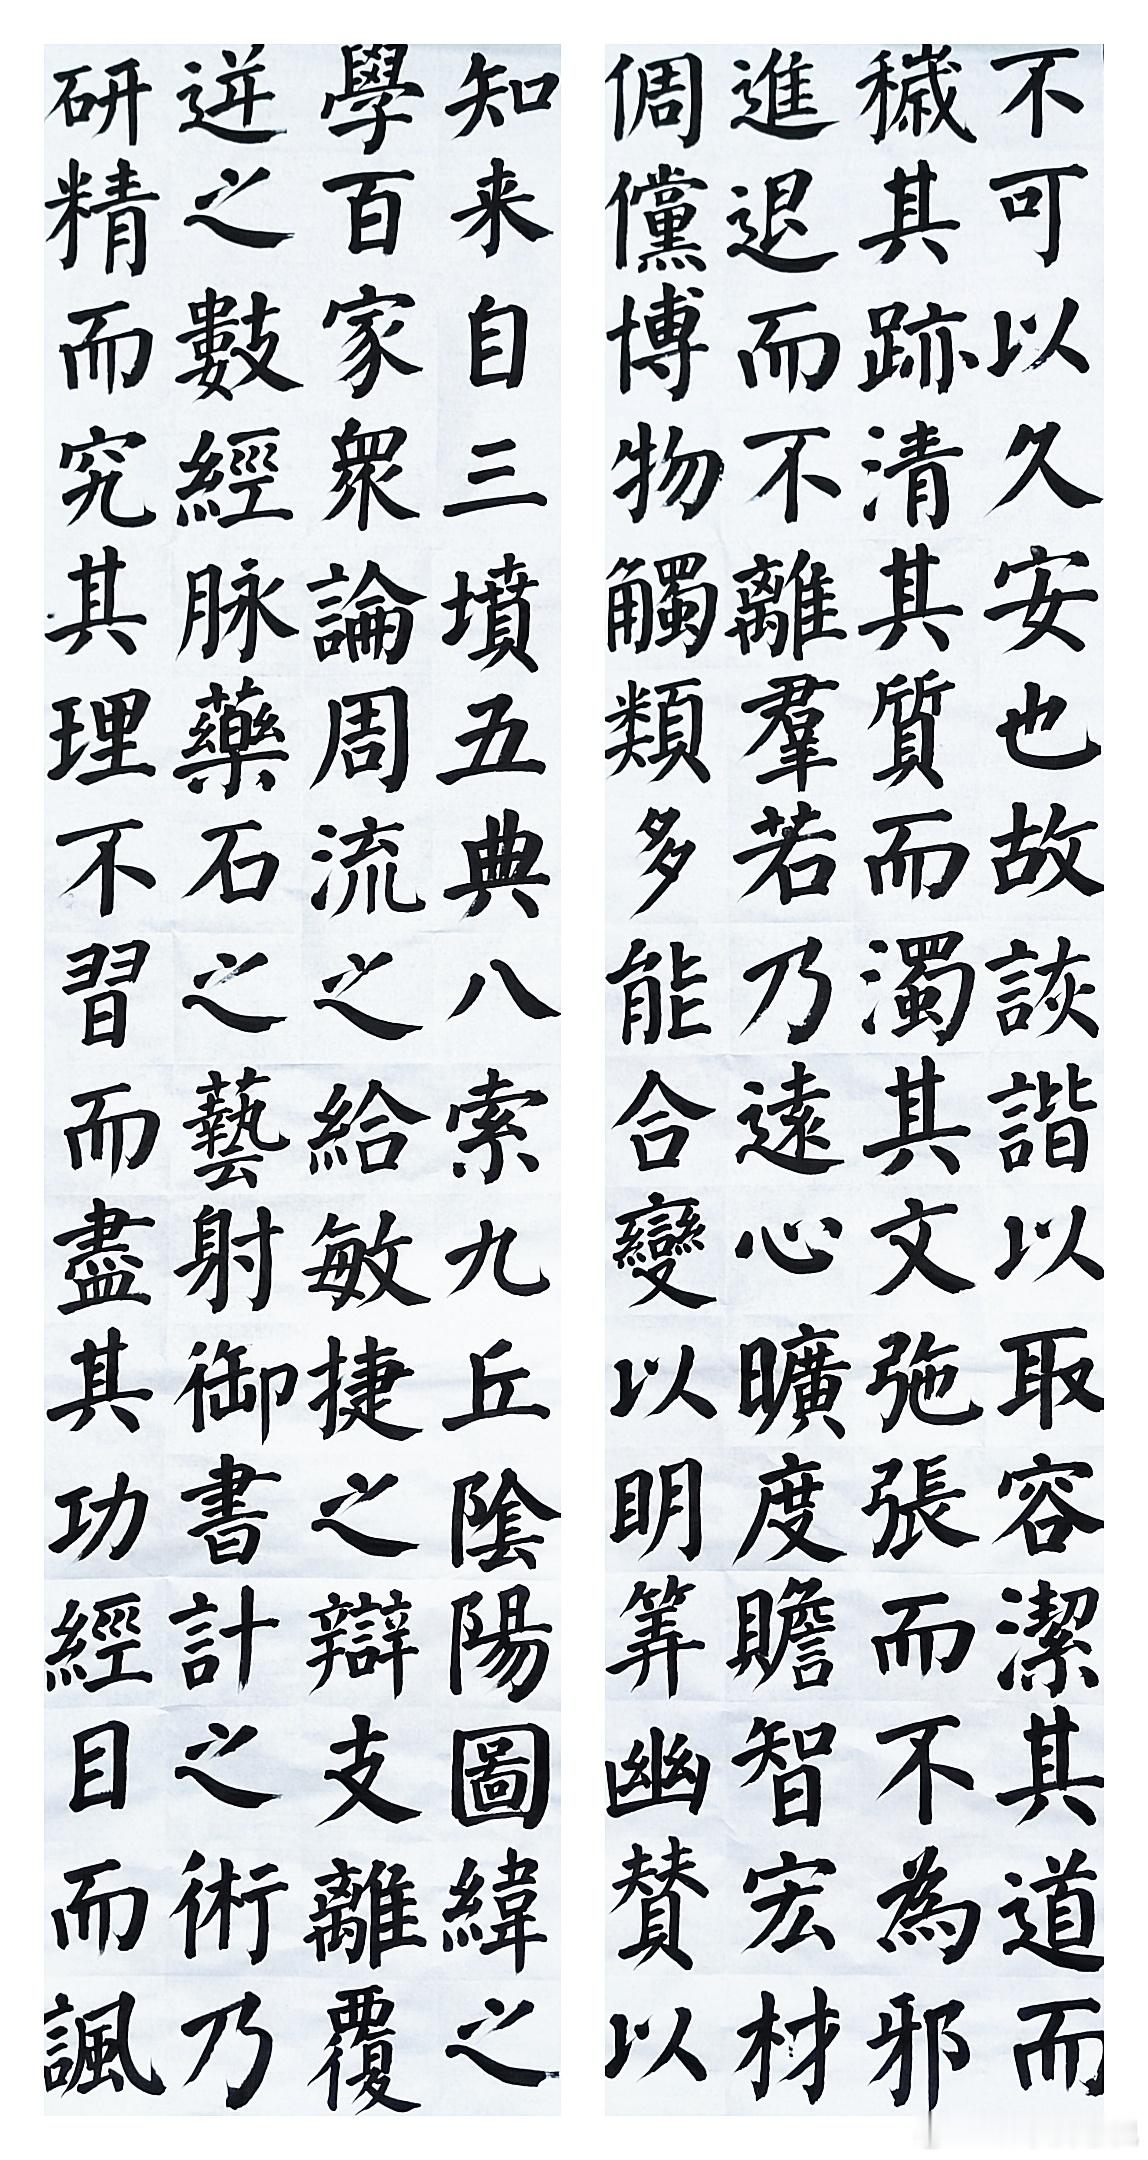 不可以久安也故詼諧以取容潔其道而
穢其跡清其質而濁其文弛張而不為邪
進退而不離羣若乃遠心曠度贍智宏材
倜儻博物觸類多能合變以明筭幽賛以
知来自三墳五典八索九丘陰陽圖緯之
學百家衆論周流之給敏捷之辯支離覆
逆之數經脉藥石之藝射御書計之術乃
研精而究其理不習而盡其功經目而諷